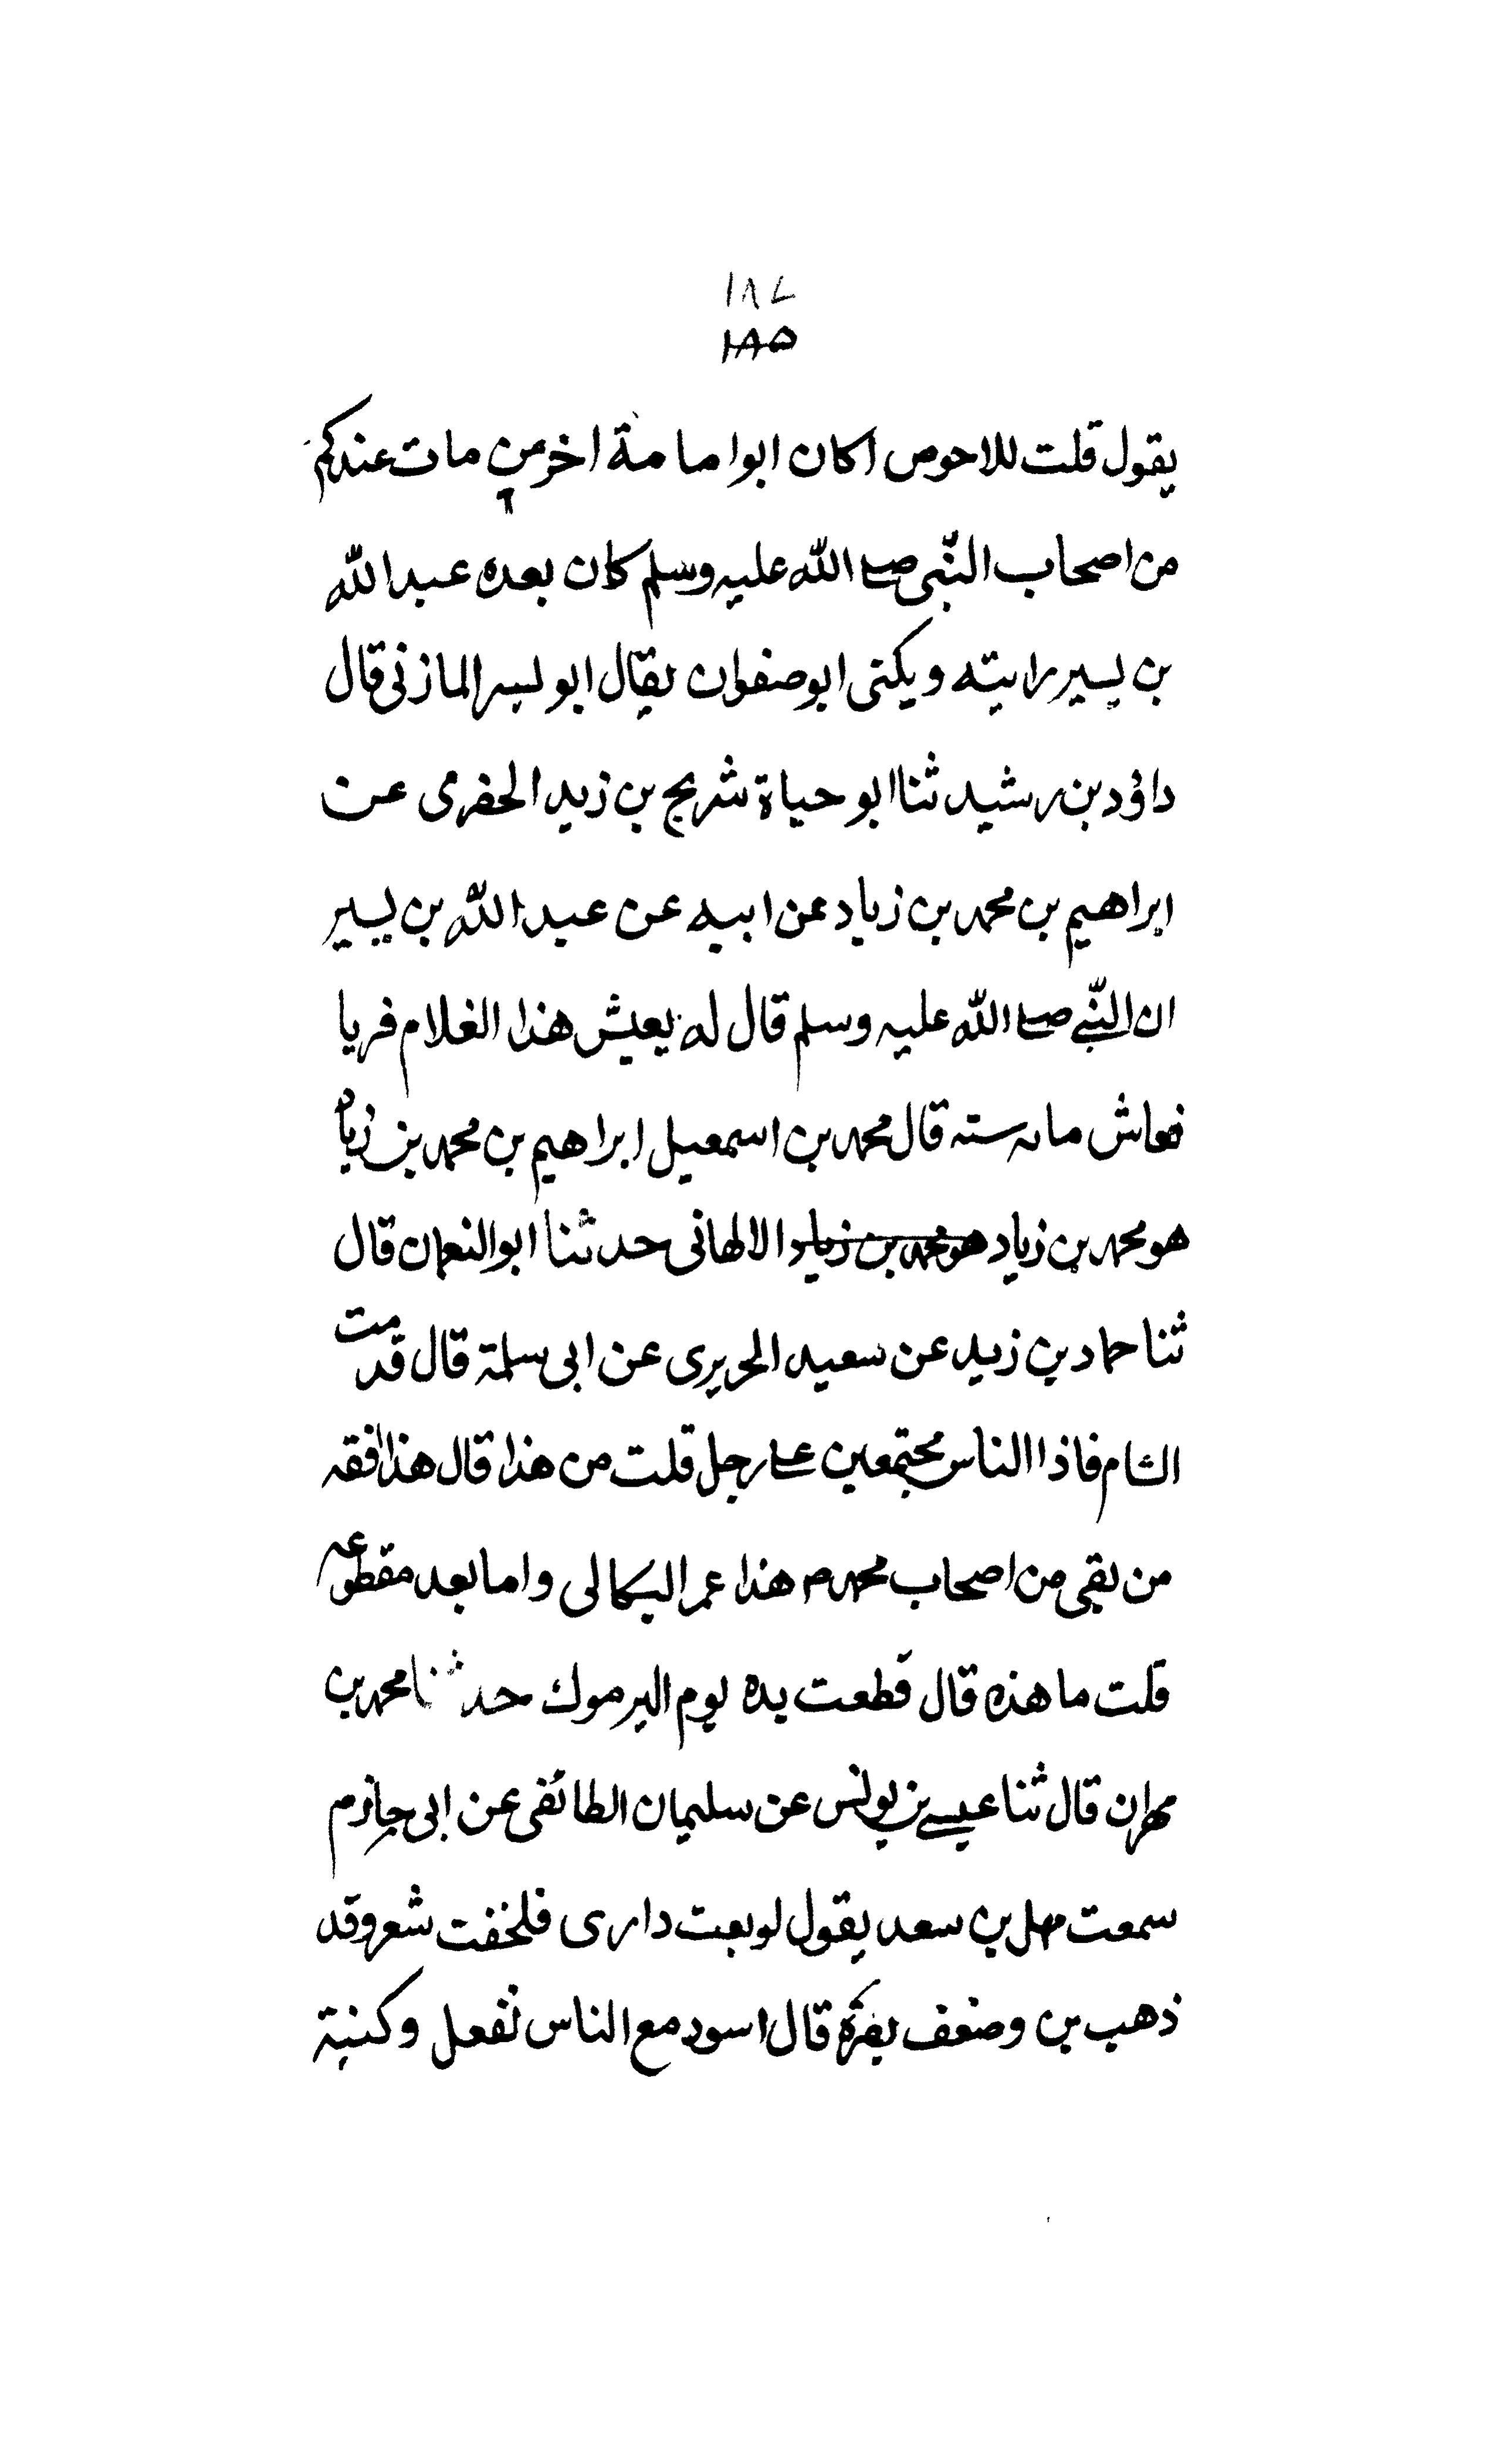 ١٨٦
١٨٥
يقول قلت للاحوص اكان ابوامامة اخرمن مات عندكم
من اصحاب النبّى صلے الله عليه وسلم كان بعده عبدالله
بن يسير رايته ويكنى ابوصفوان يقال ابو لبسر المازنى قال
داؤد بن رشيد ثنا ابو حياة شريح بن زيد الحفرمى عن
ابراهيم بن محمد بن زياد عن ابيه عن عبدالله بن يسير
ان النبّے صلے الله عليه وسلم قال له يعيش هذا الغلام قريا
فعاش مائه سنه قال محمد بن اسمعيل ابراهيم بن محمد بن زياد
هو محمد بن زياد هو محمد بن زياد الالهانى حدثنا ابوالنعمان قال
ثنا حماد بن زيد عن سعيد الحريرى عن ابى سلمة قال قدمت
الشام فاذا الناس مجتمعين علے رجل قلت من هذا قال هذا افقه
من بقى من اصحاب محمد صم هذا عمر البكالى واما بعد مقطوعه
قلت ما هذه قال قطعت يده يوم اليرموك حدثنا محمد بن
مهران قال ثنا عيسے بن يونس عن سليمان الطائفى عن ابى حازم
سمعت سهل بن سعد يقول لوبعت دارى فلحقت شعر وقد
ذهب بن وضعف بفرة قال اسود مع الناس نفعل وكنية